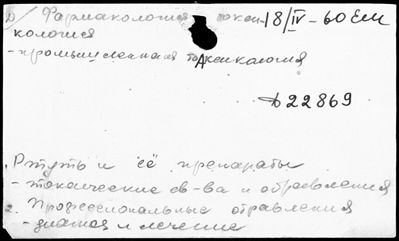 D/ Фармакология, токси- 18/IV-60 ЕМ
кология
- промышленная токсикология
D 22869
1. Ртуть и её препараты
- токсические св-ва и отравления
2. Профессиональные отравления
- диагноз и лечение